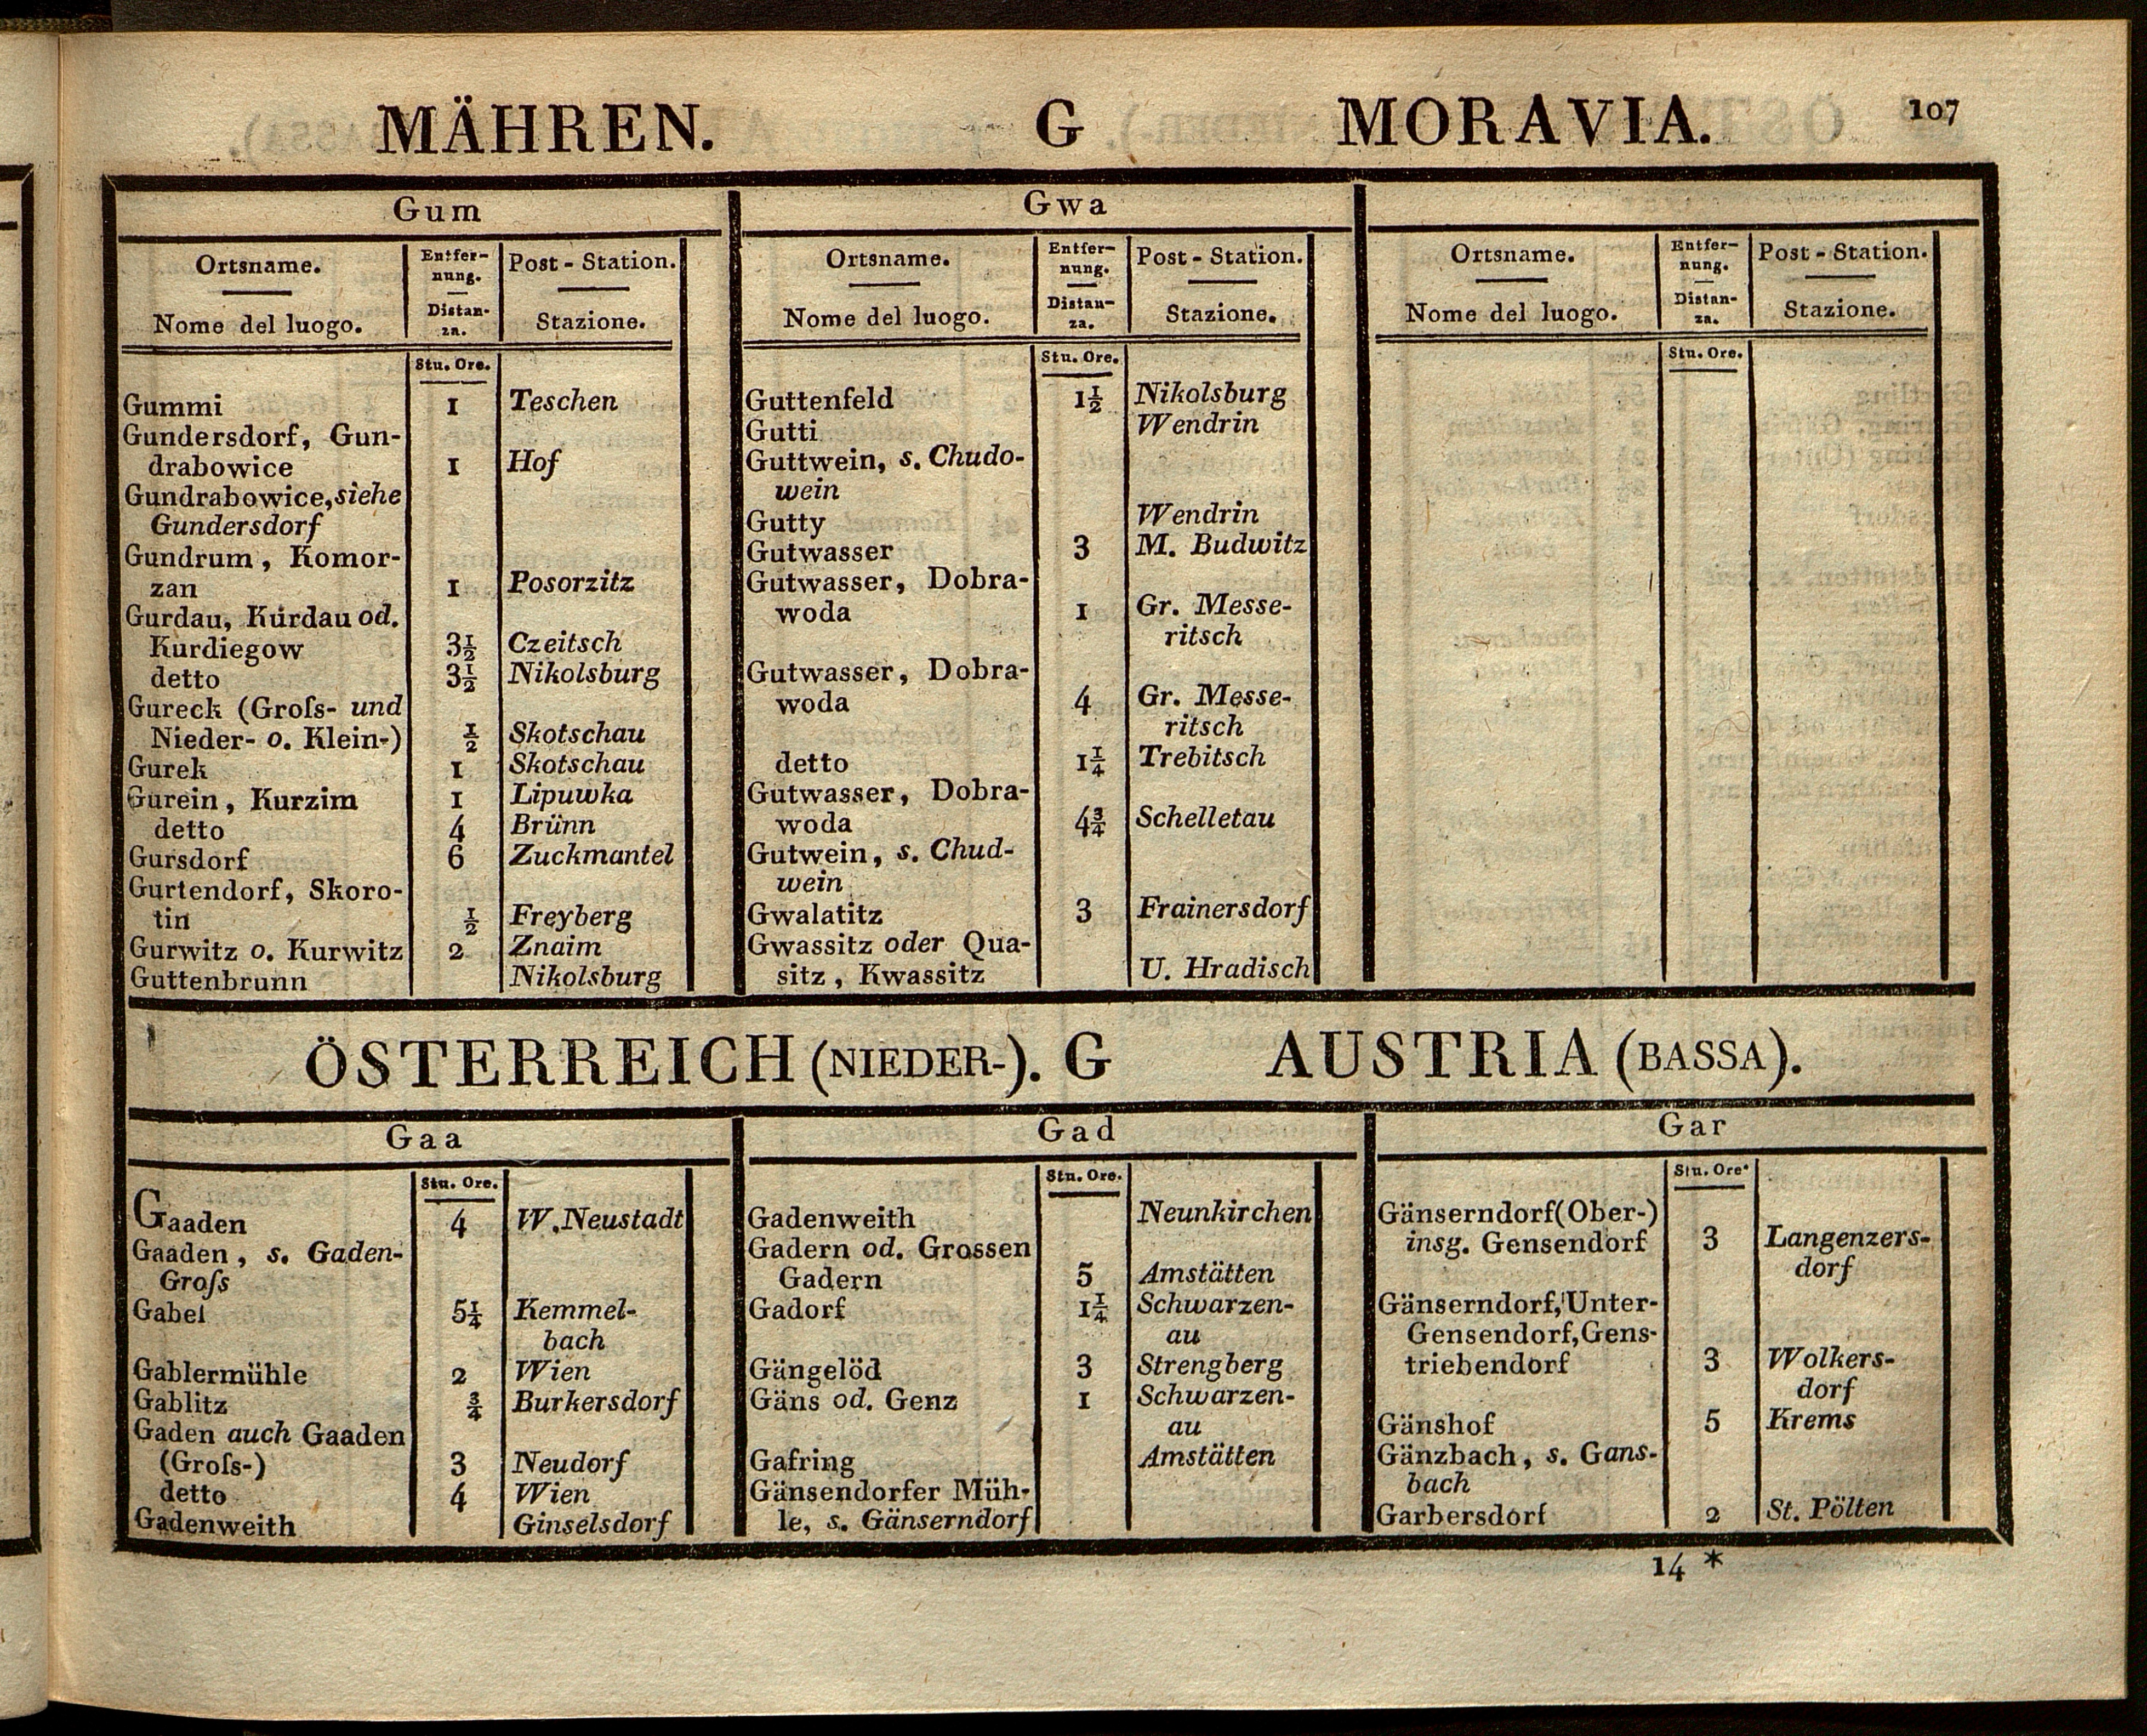 MÄHREN. G MORAVIA. 107
Gum
Ortsname. Entfer- Post - Station.
nung.
Nome del luogo. Distan- Stazione.
za.
Stu. Ore.
Gummi 1 Teschen
Gundersdorf, Gun-
drabowice 1 Hof
Gundrabowice, siehe
Gundersdorf
Gundrum, Komor-
zan 1 Posorzitz
Gurdau, Kurdau od.
Kurdiegow 3½ Czeitsch
detto 3½ Nikolsburg
Gureck (Groſs- und
Nieder- o. Klein-) ½ Skotschau
Gurek 1 Skotschau
Gurein, Kurzim 1 Lipuwka
detto 4 Brünn
Gursdorf 6 Zuckmantel
Gurtendorf, Skoro-
tin ½ Freyberg
Gurwitz o. Kurwitz 2 Znaim
Guttenbrunn Nikolsburg
Gwa
Ortsname. Entfer- Post - Station.
nung.
Nome del luogo. Distan- Stazione.
za.
Stu. Ore.
Guttenfeld 1½ Nikolsburg
Gutti Wendrin
Guttwein, s. Chudo-
wein
Gutty Wendrin
Gutwasser 3 M. Budwitz
Gutwasser, Dobra-
woda 1 Gr. Messe-
ritsch
Gutwasser, Dobra-
woda 4 Gr. Messe-
ritsch
detto 1¼ Trebitsch
Gutwasser, Dobra-
woda 4¾ Schelletau
Gutwein, s. Chud-
wein
Gwalatitz 3 Frainersdorf
Gwassitz oder Qua-
sitz, Kwassitz U. Hradisch
Ortsname. Entfer- Post - Station.
nung.
Nome del luogo. Distan- Stazione.
za.
Stu. Ore.
ÖSTERREICH (NIEDER-). G AUSTRIA (BASSA).
Gaa
Stu. Ore.
Gaaden 4 W. Neustadt
Gaaden, s. Gaden-
Groſs
Gabel 5¼ Kemmel-
bach
Gablermühle 2 Wien
Gablitz ¾ Burkersdorf
Gaden auch Gaaden
(Groſs-) 3 Neudorf
detto 4 Wien
Gadenweith Ginselsdorf
Gad
Stu. Ore.
Gadenweith Neunkirchen
Gadern od. Grossen
Gadern 5 Amstätten
Gadorf 1¼ Schwarzen-
au
Gängelöd 3 Strengberg
Gäns od. Genz 1 Schwarzen-
au
Gafring Amstätten
Gänsendorfer Müh-
le, s. Gänserndorf
Gar
Stu. Ore.
Gänserndorf (Ober-)
insg. Gensendorf 3 Langenzers-
dorf
Gänserndorf, Unter-
Gensendorf, Gens-
triebendorf 3 Wolkers-
dorf
Gänshof 5 Krems
Gänzbach, s. Gans-
bach
Garbersdorf 2 St. Pölten
14 *